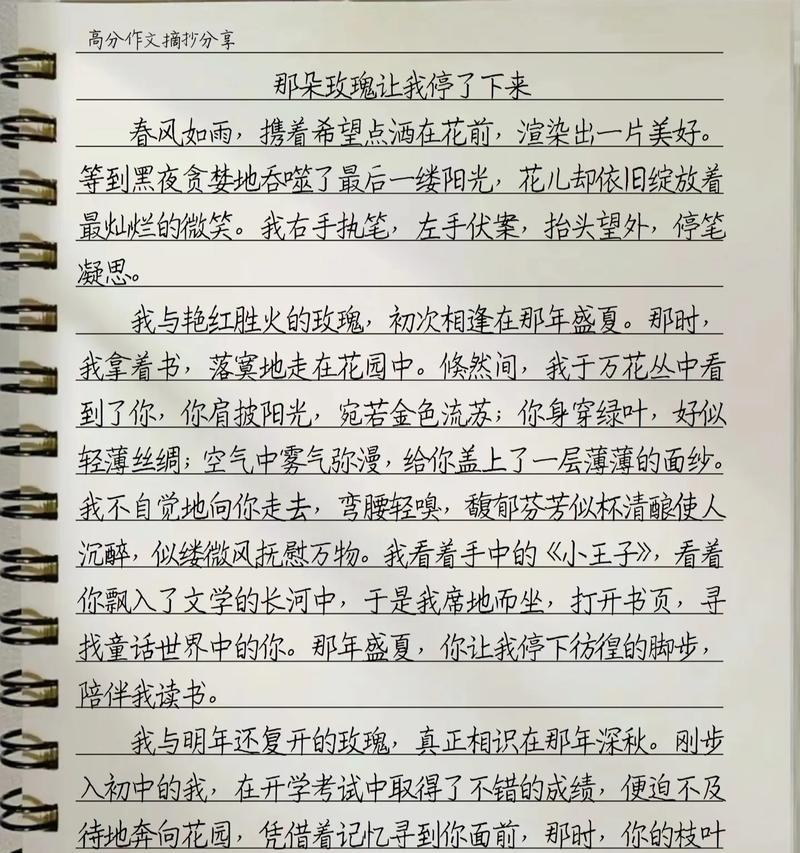 高分作文摘抄分享
那朵玫瑰让我停了下来
春风如雨，携着希望点洒在花前，渲染出一片美好。
等到黑夜贪婪地吞噬了最后一缕阳光，花儿却依旧绽放着
最灿烂的微笑。我右手执笔，左手伏案，抬头望外，停笔
凝思。
我与艳红胜火的玫瑰，初次相逢在那年盛夏。那时，
我拿着书，落寞地走在花园中。倏然间，我于万花丛中看
到了你，你肩披阳光，宛若金色流苏；你身穿绿叶，好似
轻薄丝绸；空气中雾气弥漫，给你盖上了一层薄薄的面纱。
我不自觉地向你走去，弯腰轻嗅，馥郁芬芳似杯清酿使人
沉醉，似缕微风抚慰万物。我看着手中的《小王子》，看着
你飘入了文学的长河中，于是我席地而坐，打开书页，寻
找童话世界中的你。那年盛夏，你让我停下彷徨的脚步，
陪伴我读书。
我与明年还复开的玫瑰，真正相识在那年深秋。刚步
入初中的我，在开学考试中取得了不错的成绩，便迫不及
待地奔向花园，凭借着记忆寻到你面前，那时，你的枝叶